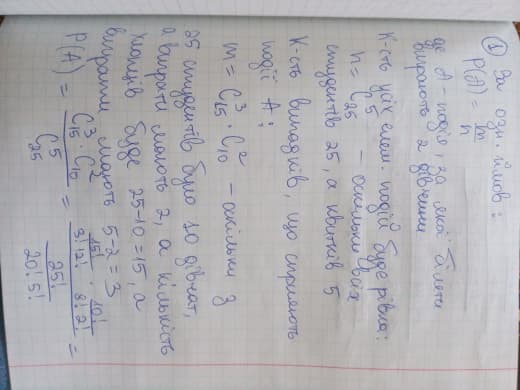 ① За озн. ймов:
P(A) = m/n
де A - подія, за якої білети
виграють 2 дівчини
К-сть усіх елем. подій буде рівна:
n = C₂₅⁵ - оскільки всіх
студентів 25, а квитків 5
К-сть випадків, що сприяють
події A:
m = C₁₅³ · C₁₀² - оскільки з
25 студентів було 10 дівчат,
а виграти мають 2, а кількість
хлопців буде 25-10=15, а
виграти мають 5-2=3
P(A) = (C₁₅³ · C₁₀²)/C₂₅⁵ = (15!/(3!12!) · 10!/(8!2!))/(25!/(20!5!)) =